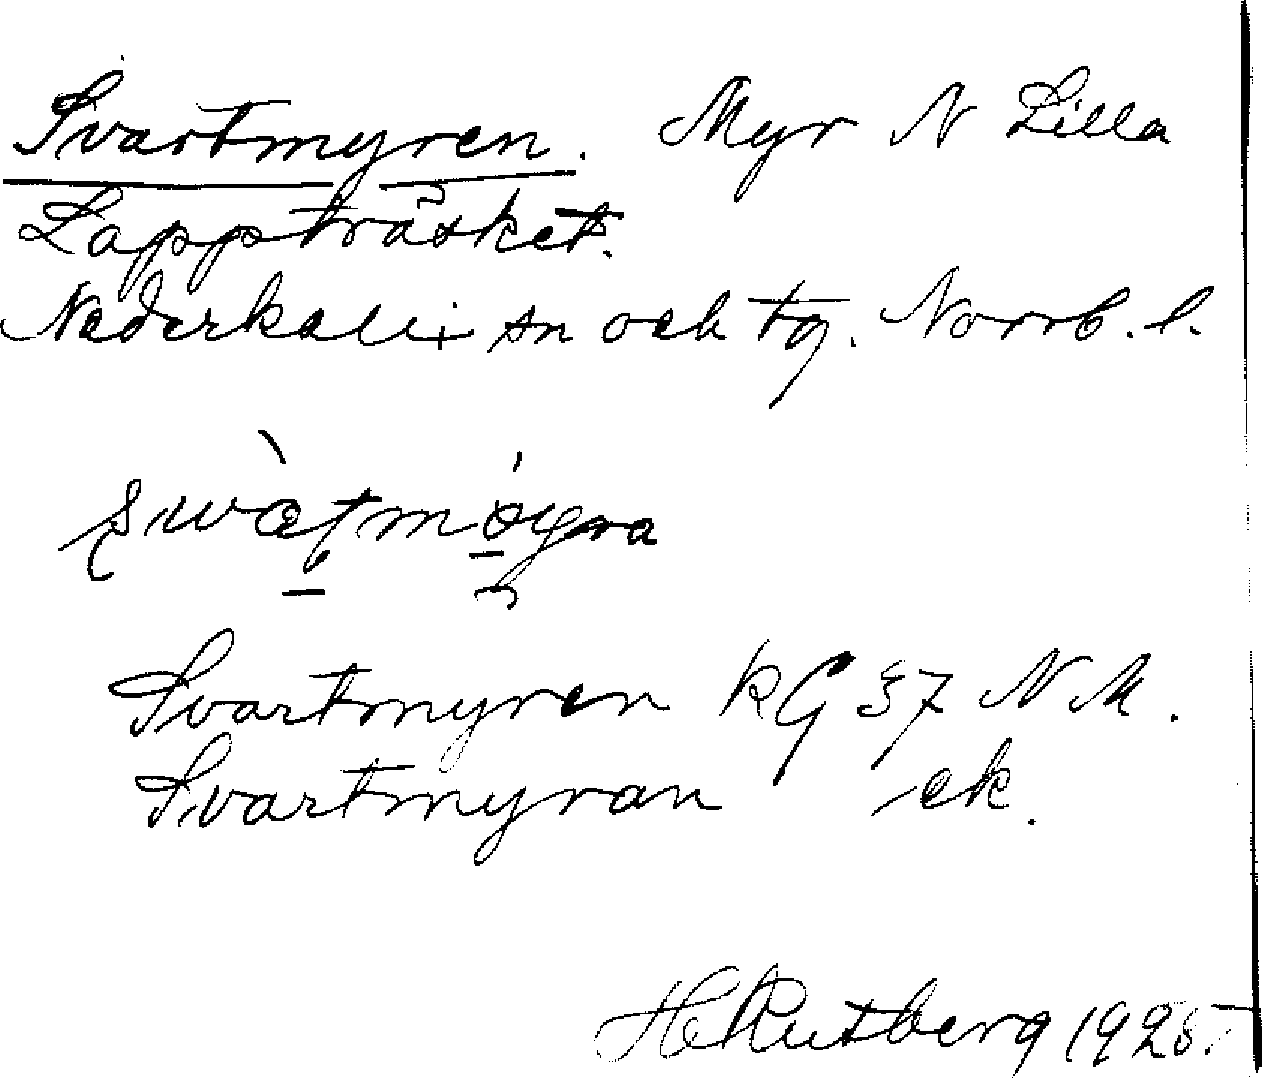 Svartmyren. Myr N Lilla
Lappträsket.
Nederkalix sn och tg. Norrb. l.
Svartmyren KG 37 N.M.
Svartmyran ek.
H Rutberg 1925.